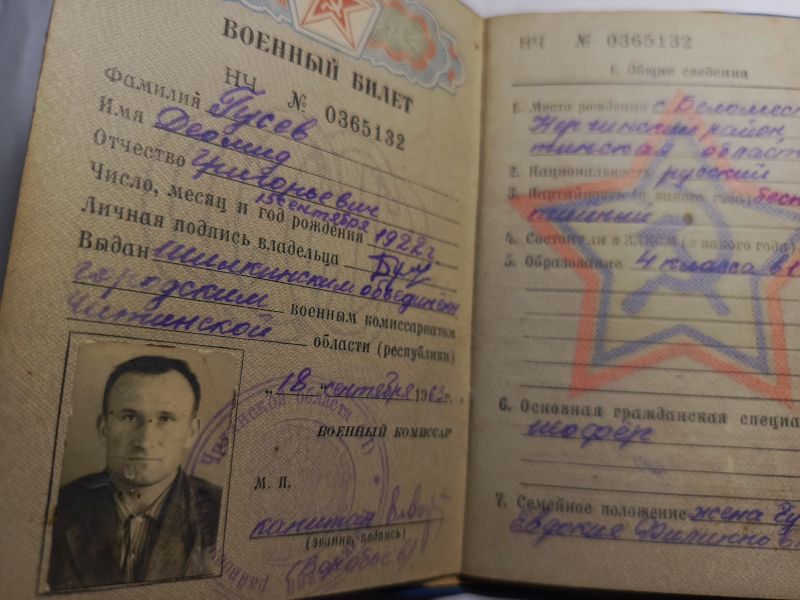 ВОЕННЫЙ БИЛЕТ
НЧ № 0365132
Фамилия Гусев
Имя Деомид
Отчество Григорьевич
Число, месяц и год рождения 15 сентября 1922 г.
Личная подпись владельца
Выдан Шилкинским объединён
городским военным комиссариатом
Читинской области (республики)
„18" сентября 1963 г.
ВОЕННЫЙ КОМИССАР
М. П.
капитан
(звание, подпись)
(Воробьев)
НЧ № 0365132
I. Общие сведения
1. Место рождения с. Беломест
Нерчинский район,
тинская област
2. Национальность русский
3. Партийность (с какого года) бесп
тийный
4. Состоял ли в ВЛКСМ (с какого года)
5. Образование 4 класса в 1
6. Основная гражданская специа
шофёр
7. Семейное положение жена Гу
Евдокия